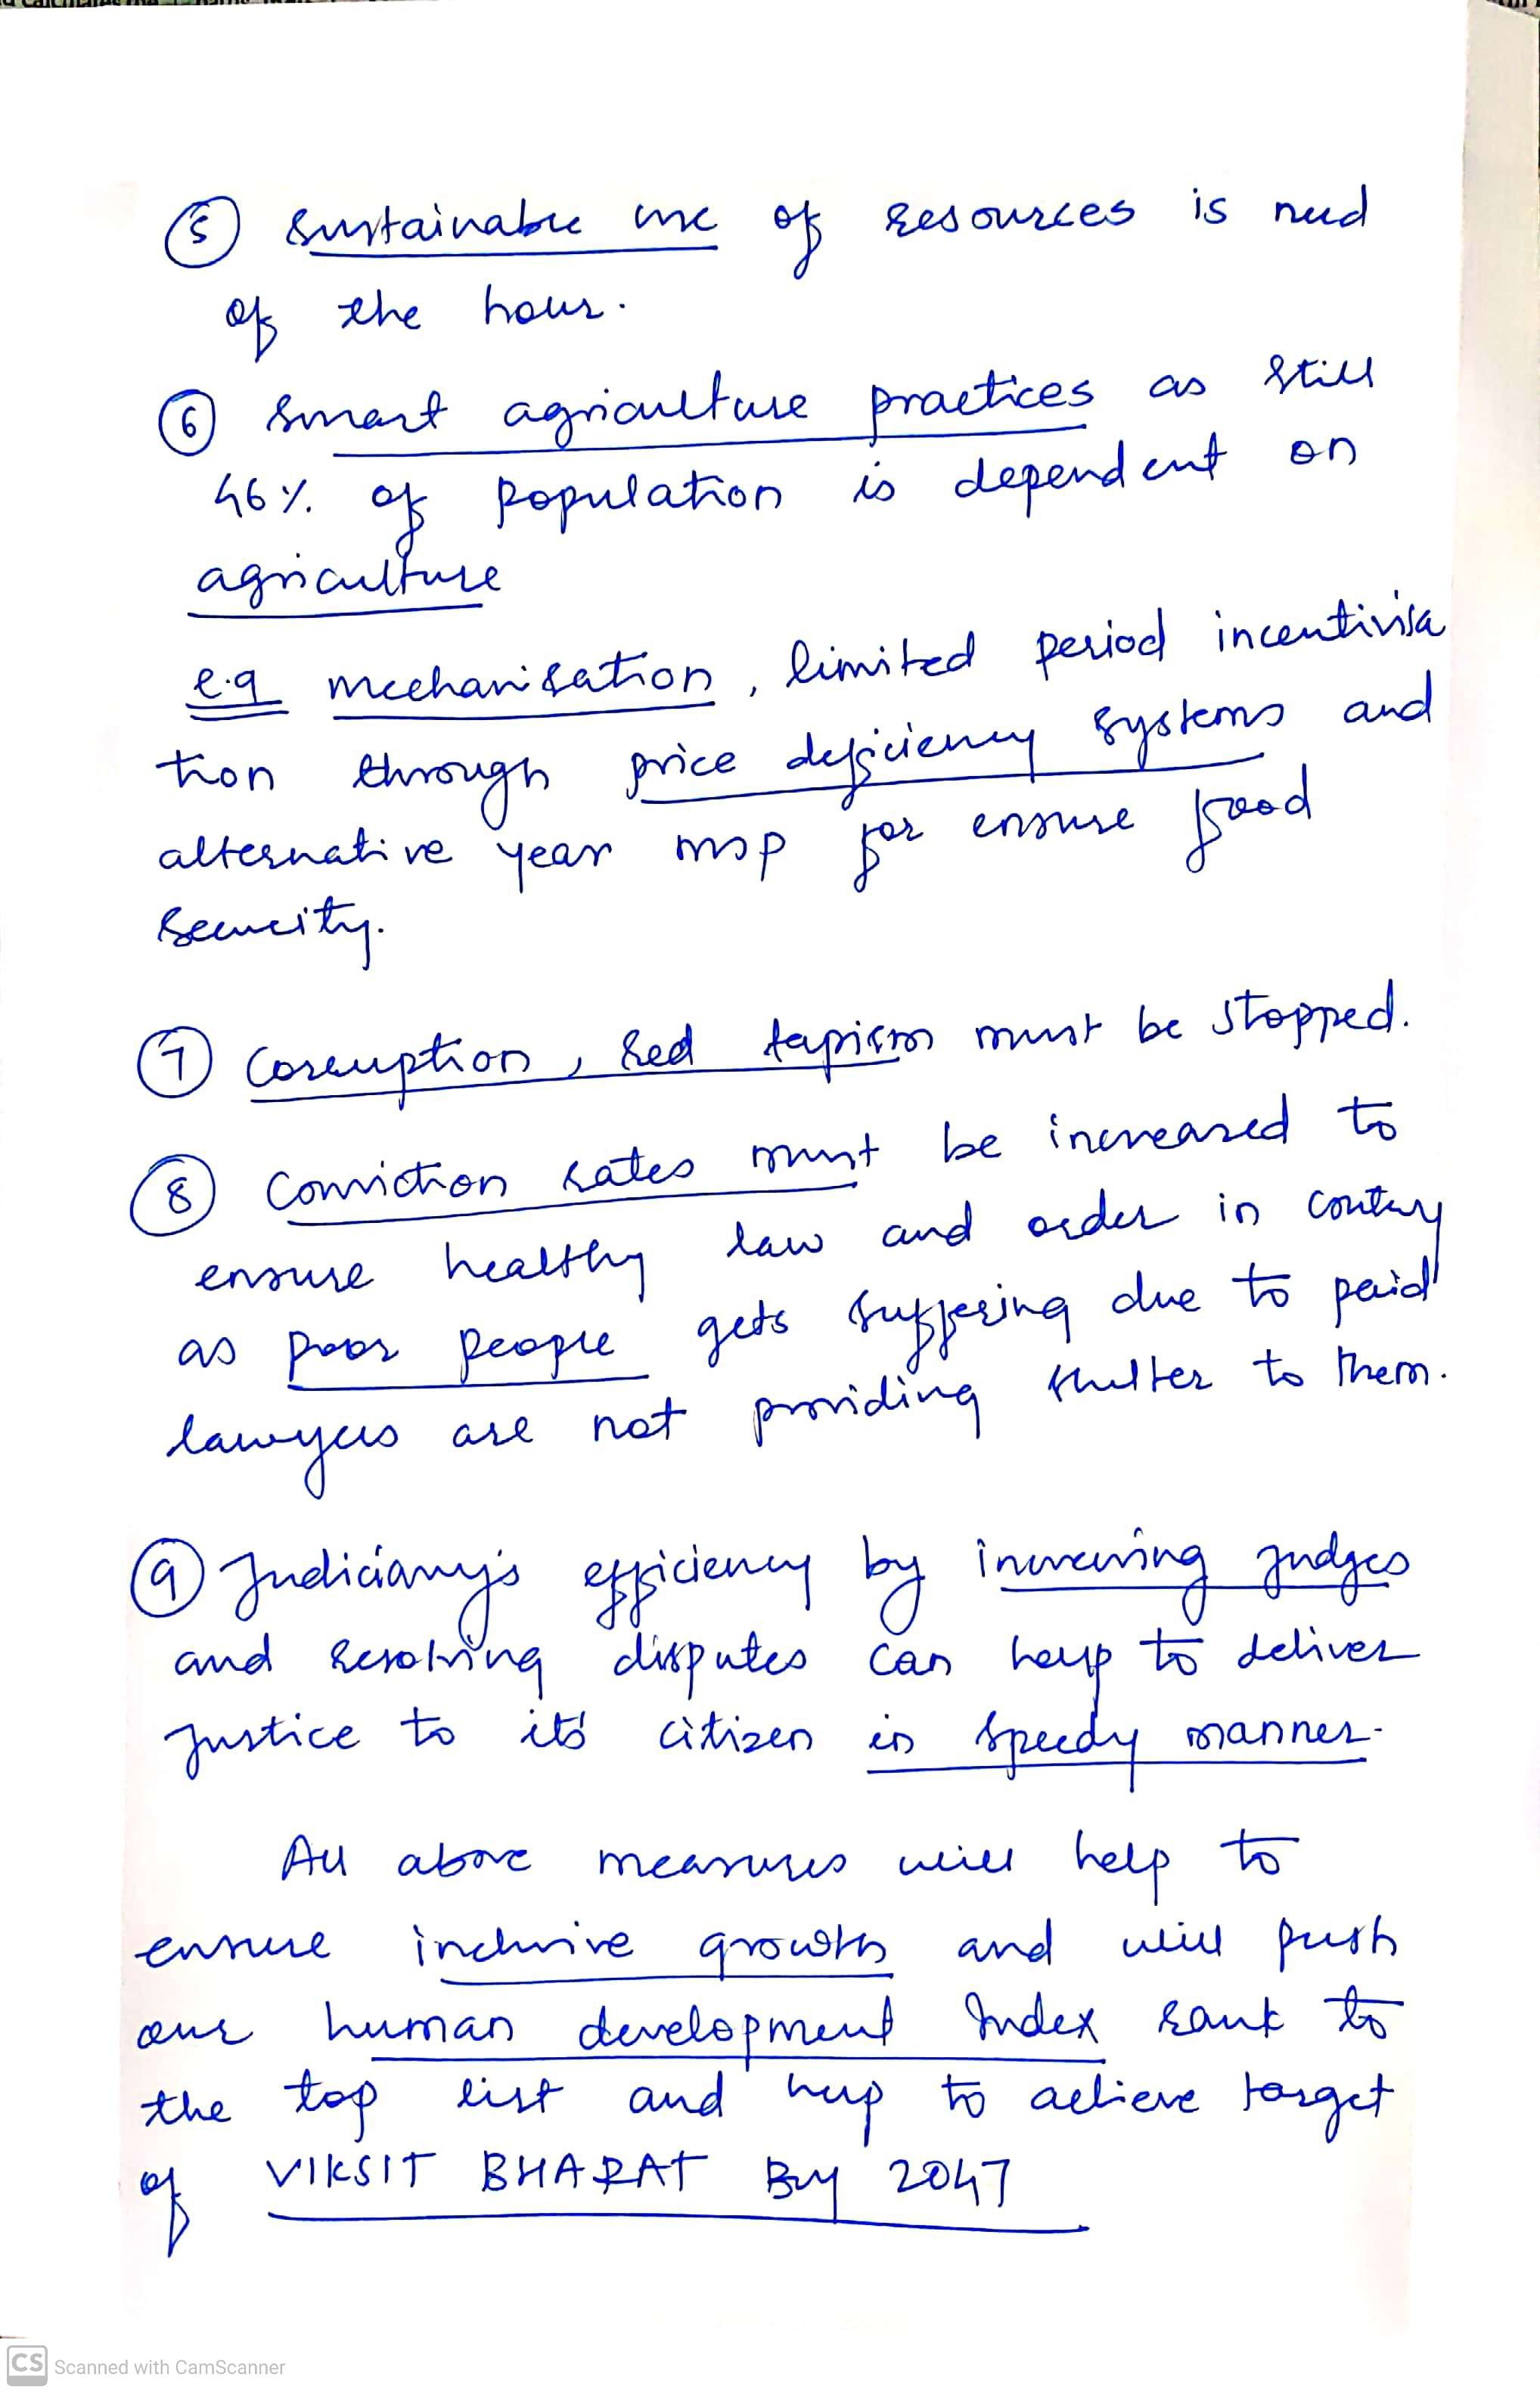 ⑤ sustainable use of resources is need
of the hour.
⑥ smart agriculture practices as still
46% of population is dependent on
agriculture
e.g mechanisation, limited period incentivisa
tion through price deficiency systems and
alternative year msp for ensure food
security.
⑦ Corruption, Red tapism must be stopped.
⑧ Conviction rates must be increased to
ensure healthy law and order in contry
as poor people gets suffering due to paid
lawyers are not providing shelter to them.
⑨ Judiciary's efficiency by increasing judges
and resolving disputes can help to deliver
justice to its citizen in speedy manner.
All above measures will help to
ensure inclusive growth and will push
our human development Index rank to
the top list and help to achieve target
of VIKSIT BHARAT By 2047
CS Scanned with CamScanner